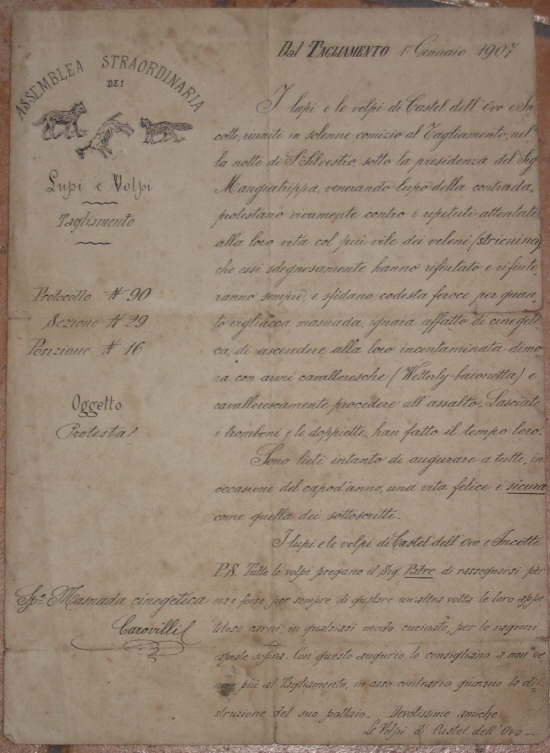 ASSEMBLEA STRAORDINARIA
DEI
Lupi e Volpi
Tagliamento
Protocollo # 90
Sezione # 29
Posizione # 16
Oggetto
Protesta!
Spe. Masnada cinegetica
Carovilli
Dal TAGLIAMENTO 1° Gennaio 1907
I lupi e le volpi di Castel dell'Ovo e In
cotte, riuniti in solenne comizio al Tagliamento, nel
la notte di S. Silvestro, sotto la presidenza del Sig
Mangiatuppa, venerando lupo della contrada,
protestano vivamente contro i ripetuti attentati
alla loro vita col più vile dei veleni (stricnina)
che essi sdegnosamente hanno rifiutato e rifiute
ranno sempre, e sfidano codesta feroce per quan
to vigliacca masnada, ignara affatto di cinegeti
ca, di ascendere alla loro incontaminata dimo
ra con armi cavalleresche (Wetterly-baionetta) e
cavallerescamente procedere all'assalto. Lasciate
i tromboni e le doppiette, han fatto il tempo loro.
Sono lieti intanto di augurare a tutti, in
occasione del capod'anno, una vita felice e sicura
come quella dei sottoscritti.
I lupi e le volpi di Castel dell'Ovo e Incotte
P.S. Tutte le volpi pregano il Sig. Patre di rassegnarsi, per
ora e forse, per sempre di gustare un'altra volta le loro appe
titose carni, in qualsiasi modo cucinate, per le ragioni
esposte sopra. Con questo augurio lo consigliano a non ve
nir più al Tagliamento, in caso contrario giurano la di
struzione del suo pollaio. Devotissime amiche
Le Volpi di Castel dell'Ovo